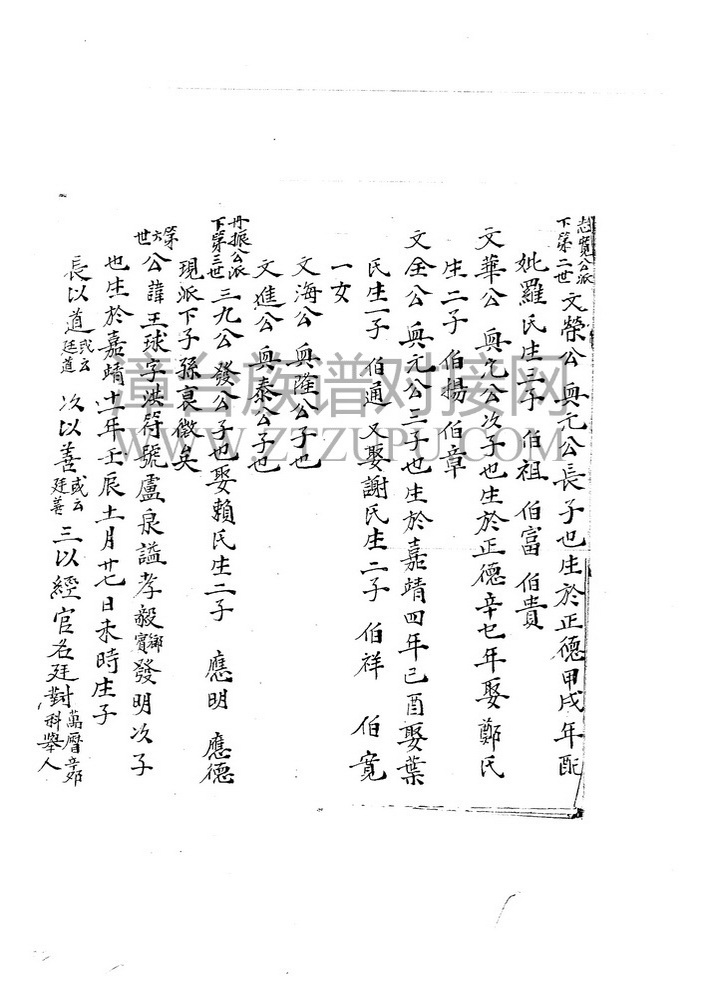 志寬公派
下第二世
文榮公 興元公長子也生於正德甲戌年配
妣羅氏生三子 伯祖 伯富 伯貴
文華公 興元公次子也生於正德辛巳年娶鄭氏
生二子 伯揚 伯章
文全公 興元公三子也生於嘉靖四年己酉娶葉
氏生一子 伯通 又娶謝氏生二子 伯祥 伯寬
一女
文海公 興隆公子也
文進公 興泰公子也
丹振公派
下第三世
三九公 發公子也娶賴氏生二子 應明 應德
現派下子孫衰微矣
第六
世
公諱玉球字洪符號盧泉謚孝毅鄉賓發明次子
也生於嘉靖十一年壬辰十一月廿七日未時生子
長以道或云廷道 次以善或云廷善 三以經官名廷對萬曆辛卯科舉人
章台族谱对接网
WWW.ZTZUPU.COM